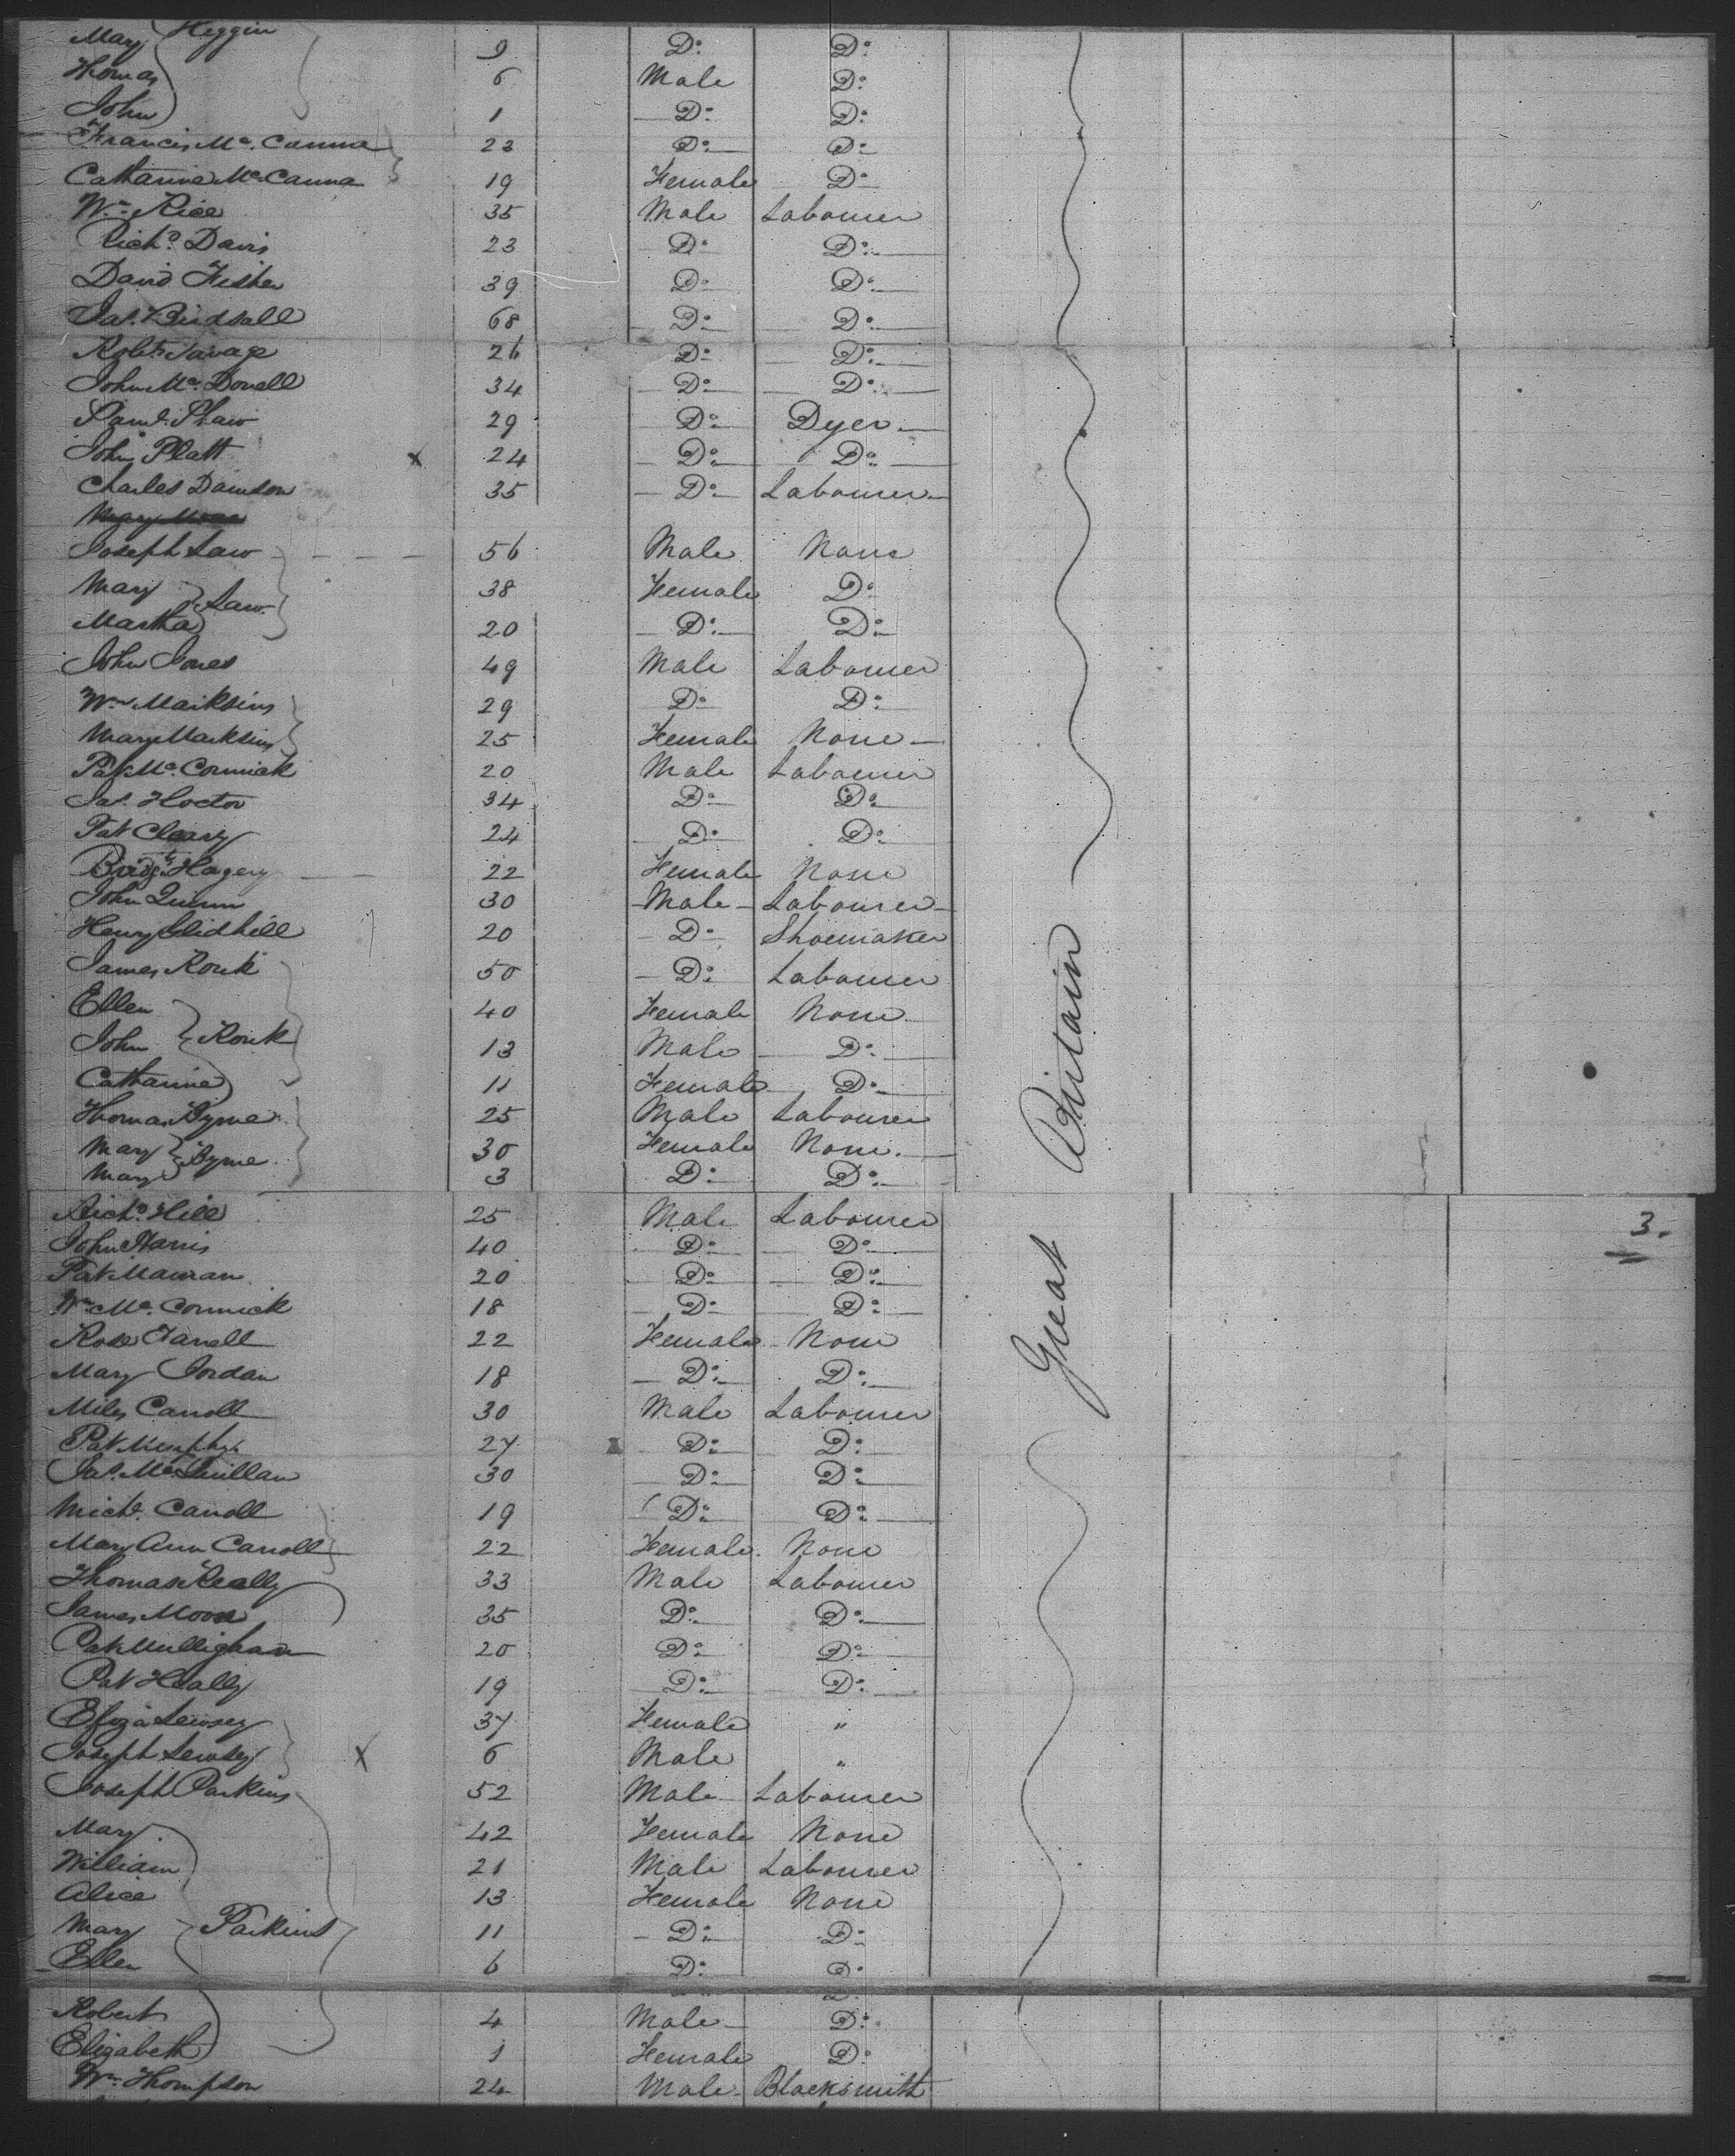 Mary } Heggin 9 Do. Do.
Thomas 6 Male Do.
John 1 Do. Do.
Francis Mc. Canna 23 Do. Do.
Catharine Mc. Canna 19 Female Do.
Wm. Rice 35 Male Labourer
Richd. Davis 23 Do. Do.
David Fisher 39 Do. Do.
Jas. Birdsall 68 Do. Do.
Robt. Savage 26 Do. Do.
John Mc. Donell 34 Do. Do.
Saml. Shaw 29 Do. Dyer
John Platt x 24 Do. Do.
Charles Dawson 35 Do. Labourer
Mary
Joseph Law 56 Male None
Mary } Law 38 Female Do.
Martha 20 Do. Do.
John Jones 49 Male Labourer
Wm. 29 Do. Do.
Mary 25 Female None
Pat Mc. Cormick 20 Male Labourer
Jas. Hoctor 34 Do. Do.
Pat Cleary 24 Do. Do.
Bridgt. Hagery 22 Female None
John Quinn 30 Male Labourer
Henry Glidhill 20 Do. Shoemaker
James Rork 50 Do. Labourer
Ellen 40 Female None
John } Rork 13 Male Do.
Catharine 11 Female Do.
Thomas Byrne 25 Male Labourer
Mary } Byrne 30 Female None.
Mary 3 Do. Do.
Richd. Hill 25 Male Labourer 3.
John Harris 40 Do. Do.
Pat 20 Do. Do.
Wm. Mc. Cormick 18 Do. Do.
Rose Farrell 22 Female None
Mary Jordan 18 Do. Do.
Miles Carroll 30 Male Labourer
Pat Murphy 27 Do. Do.
Jas. Mc. Quillan 30 Do. Do.
Michl. Carroll 19 Do. Do.
Mary Ann Carroll 22 Female None
Thomas Really 33 Male Labourer
James Moon 35 Do. Do.
Pat Mullighan 20 Do. Do.
Pat Heally 19 Do. Do.
Eliza Lewsey 37 Female "
Joseph Lewsey x 6 Male "
Joseph Parkins 52 Male Labourer
Mary 42 Female None
William 21 Male Labourer
Alice 13 Female None
Mary } Parkins 11 Do. Do.
Ellen 6 Do. Do.
Robert 4 Male Do.
Elizabeth 1 Female Do.
Wm. Thompson 24 Male Blacksmith
Great Britain